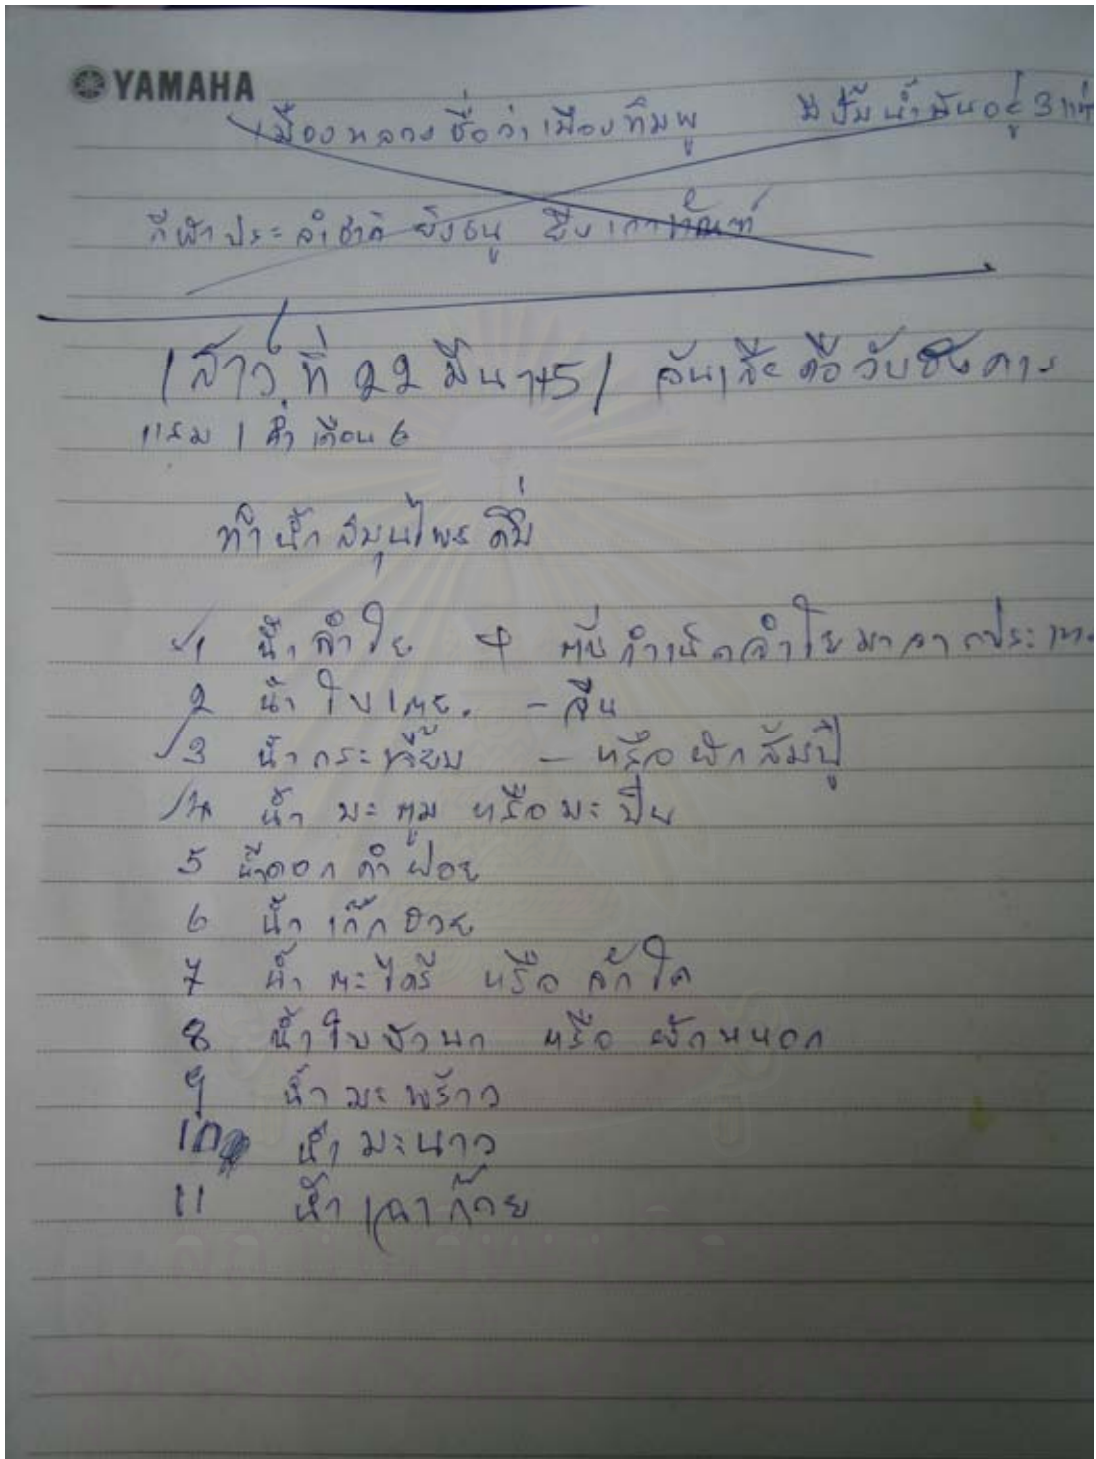 YAMAHA
เมืองหลวงชื่อว่าเมืองทิมพู มีปั๊มน้ำมันอยู่ 3 แห่
กีฬาประจำชาติ ยิงธนู ยิงเกาทัณฑ์
เสาร์ ที่ 22 มีนา 45 / วันเสีย คือวันอังคาร
แรม 1 ค่ำ เดือน 6
ทำน้ำสมุนไพรดื่ม
1 น้ำลำใย ต้นกำเนิดลำใยมาจากประเทศ
2 น้ำใบเตย. - จีน
3 น้ำกระเจี๊ยบ - หรือผักส้มปู
4 น้ำ มะตูม หรือมะปิน
5 น้ำดอกคำฝอย
6 น้ำ เก๊กฮวย
7 น้ำ ตะไคร้ หรือ จักไค
8 น้ำใบบัวบก หรือ ผักหนอก
9 น้ำมะพร้าว
10 น้ำ มะนาว
11 น้ำ เฉาก๊วย